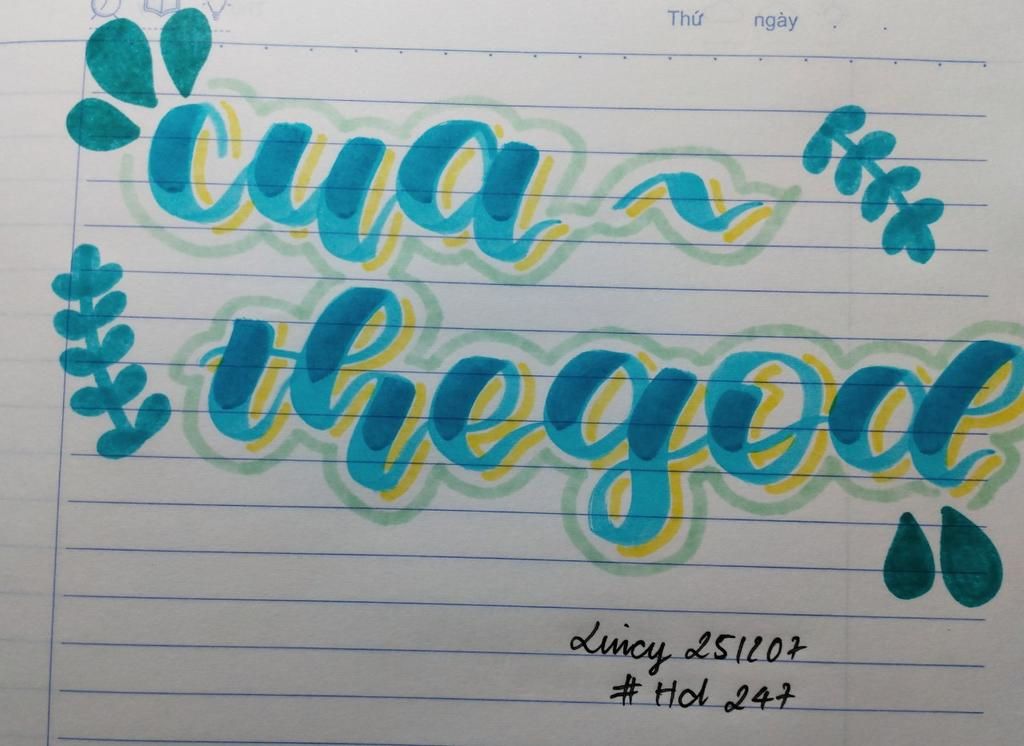 Thứ ngày . .
cua ~
thegod
Lincy 251207
# Hd 247